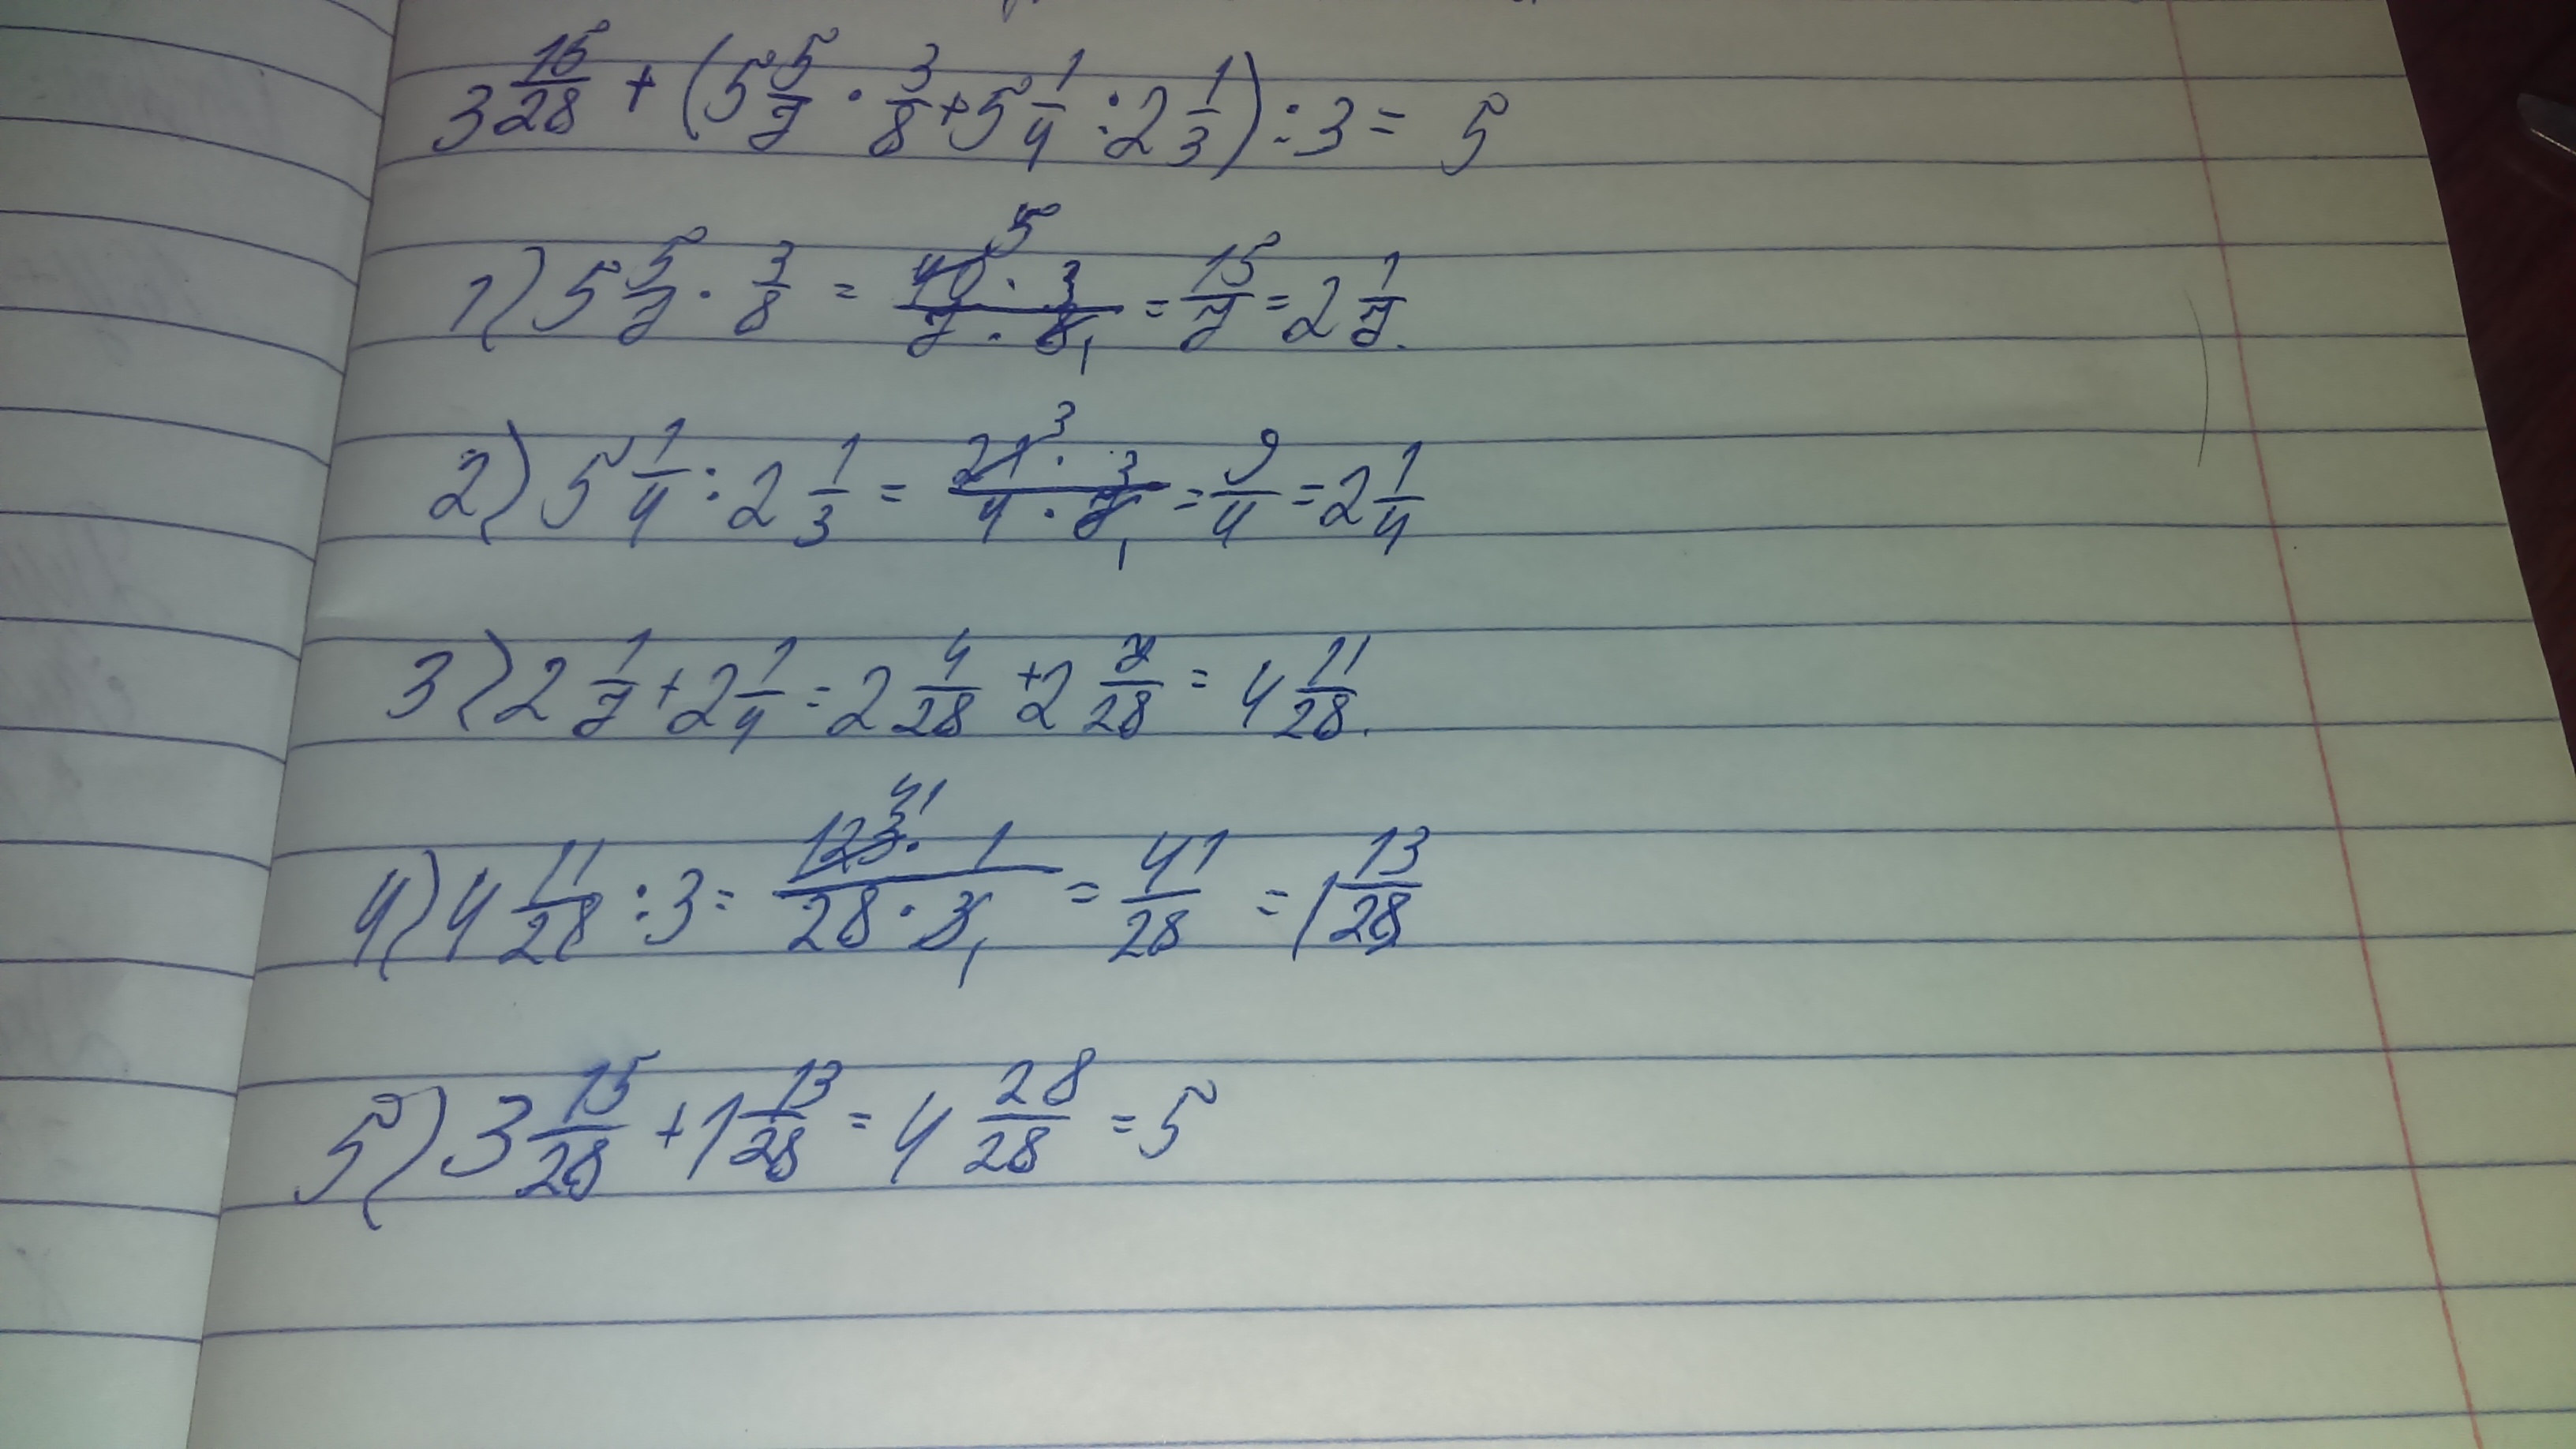 3 15/28 + (5 5/7 · 3/8 + 5 1/4 : 2 1/3) : 3 = 5
1) 5 5/7 · 3/8 = (40 5 · 3)/(7 · 8 1) = 15/7 = 2 1/7.
2) 5 1/4 : 2 1/3 = (21 3 · 3)/(4 · 7 1) = 9/4 = 2 1/4
3) 2 1/7 + 2 1/4 = 2 4/28 + 2 7/28 = 4 11/28.
4) 4 11/28 : 3 = (123 41 · 1)/(28 · 3 1) = 41/28 = 1 13/28
5) 3 15/28 + 1 13/28 = 4 28/28 = 5